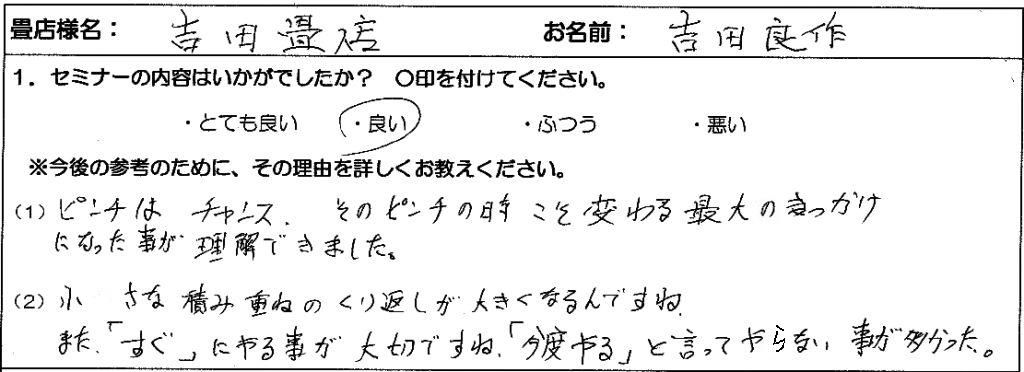 畳店様名： 吉田畳店 お名前： 吉田良作
1．セミナーの内容はいかがでしたか？ 〇印を付けてください。
・とても良い ・良い ・ふつう ・悪い
※今後の参考のために、その理由を詳しくお教えください。
(1) ピンチは チャンス、そのピンチの時こそ変わる最大のきっかけ
になった事が理解できました。
(2) 小さな積み重ねのくり返しが大きくなるんですね。
また、「すぐ」にやる事が大切ですね、「今度やる」と言ってやらない事が多かった。